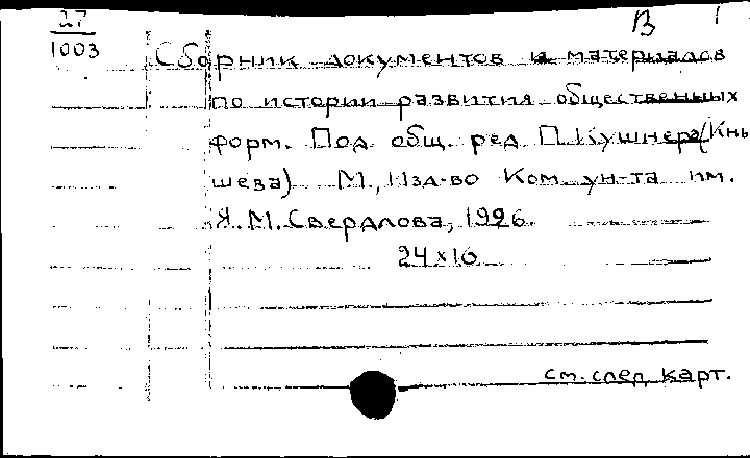 27
1003
В 1
Сборник документов и материалов
по истории развития общественных
форм. Под общ. ред П. Кушнера (Кны
шева) М., Изд-во Ком. ун-та им.
Я. М. Свердлова, 1926.
24х16
см. след карт.